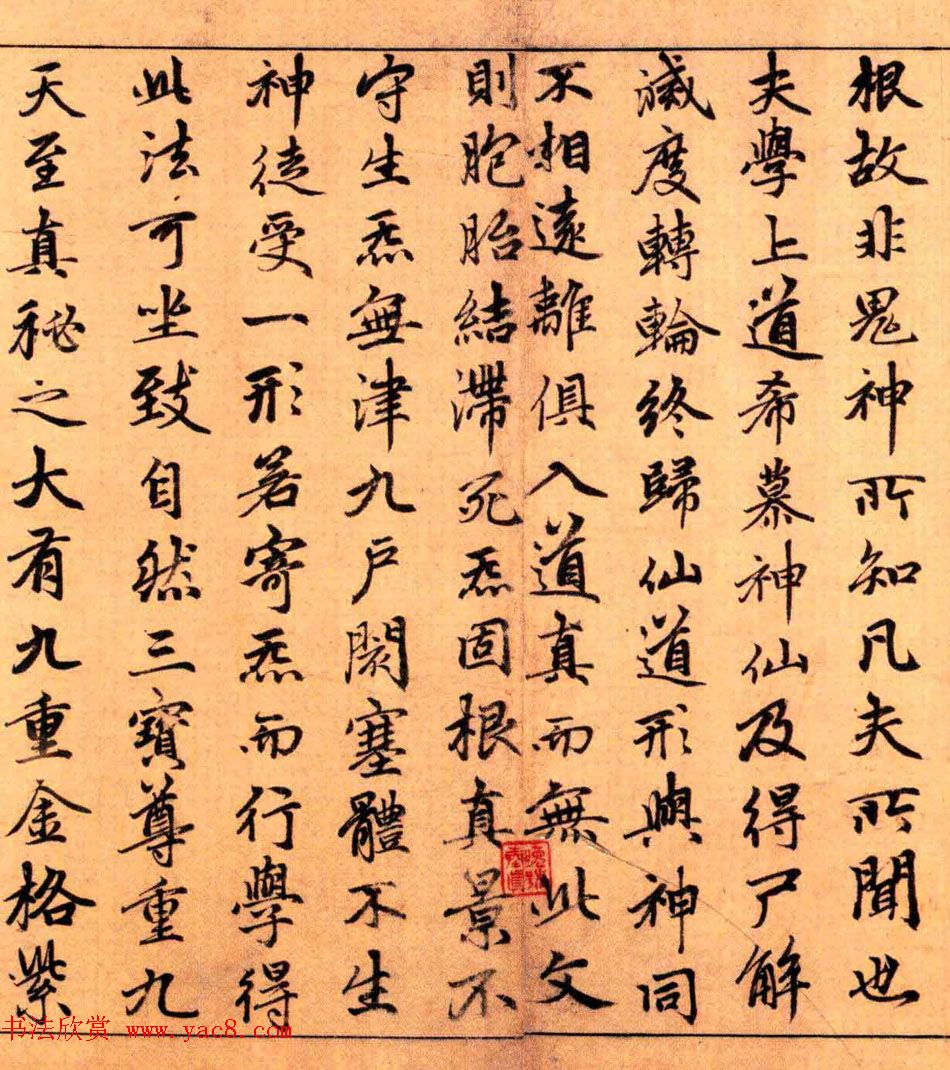 根故非鬼神所知凡夫所聞也
夫學上道希慕神仙及得尸解
滅度轉輪終歸仙道形與神同
不相遠離俱入道真而無此文
則胞胎結滯死炁固根真景不
守生炁無津九戶閡塞體不生
神徒受一形若寄炁而行學得
此法可坐致自然三寶尊重九
天至真秘之大有九重金格紫
书法欣赏 www.yac8.com